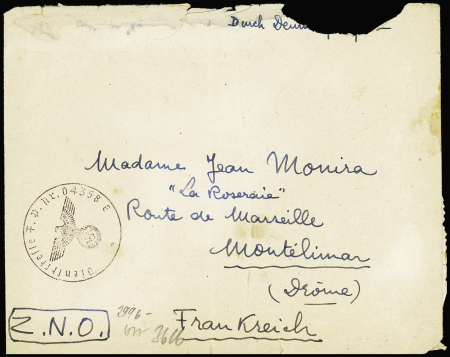 Durch
Madame Jean Monira
"La Roseraie"
Route de Marseille
Montélimar
(Drôme)
Frankreich
Z.N.O.
Dienststelle F.P. Nr. 04358 E
2996-
3616